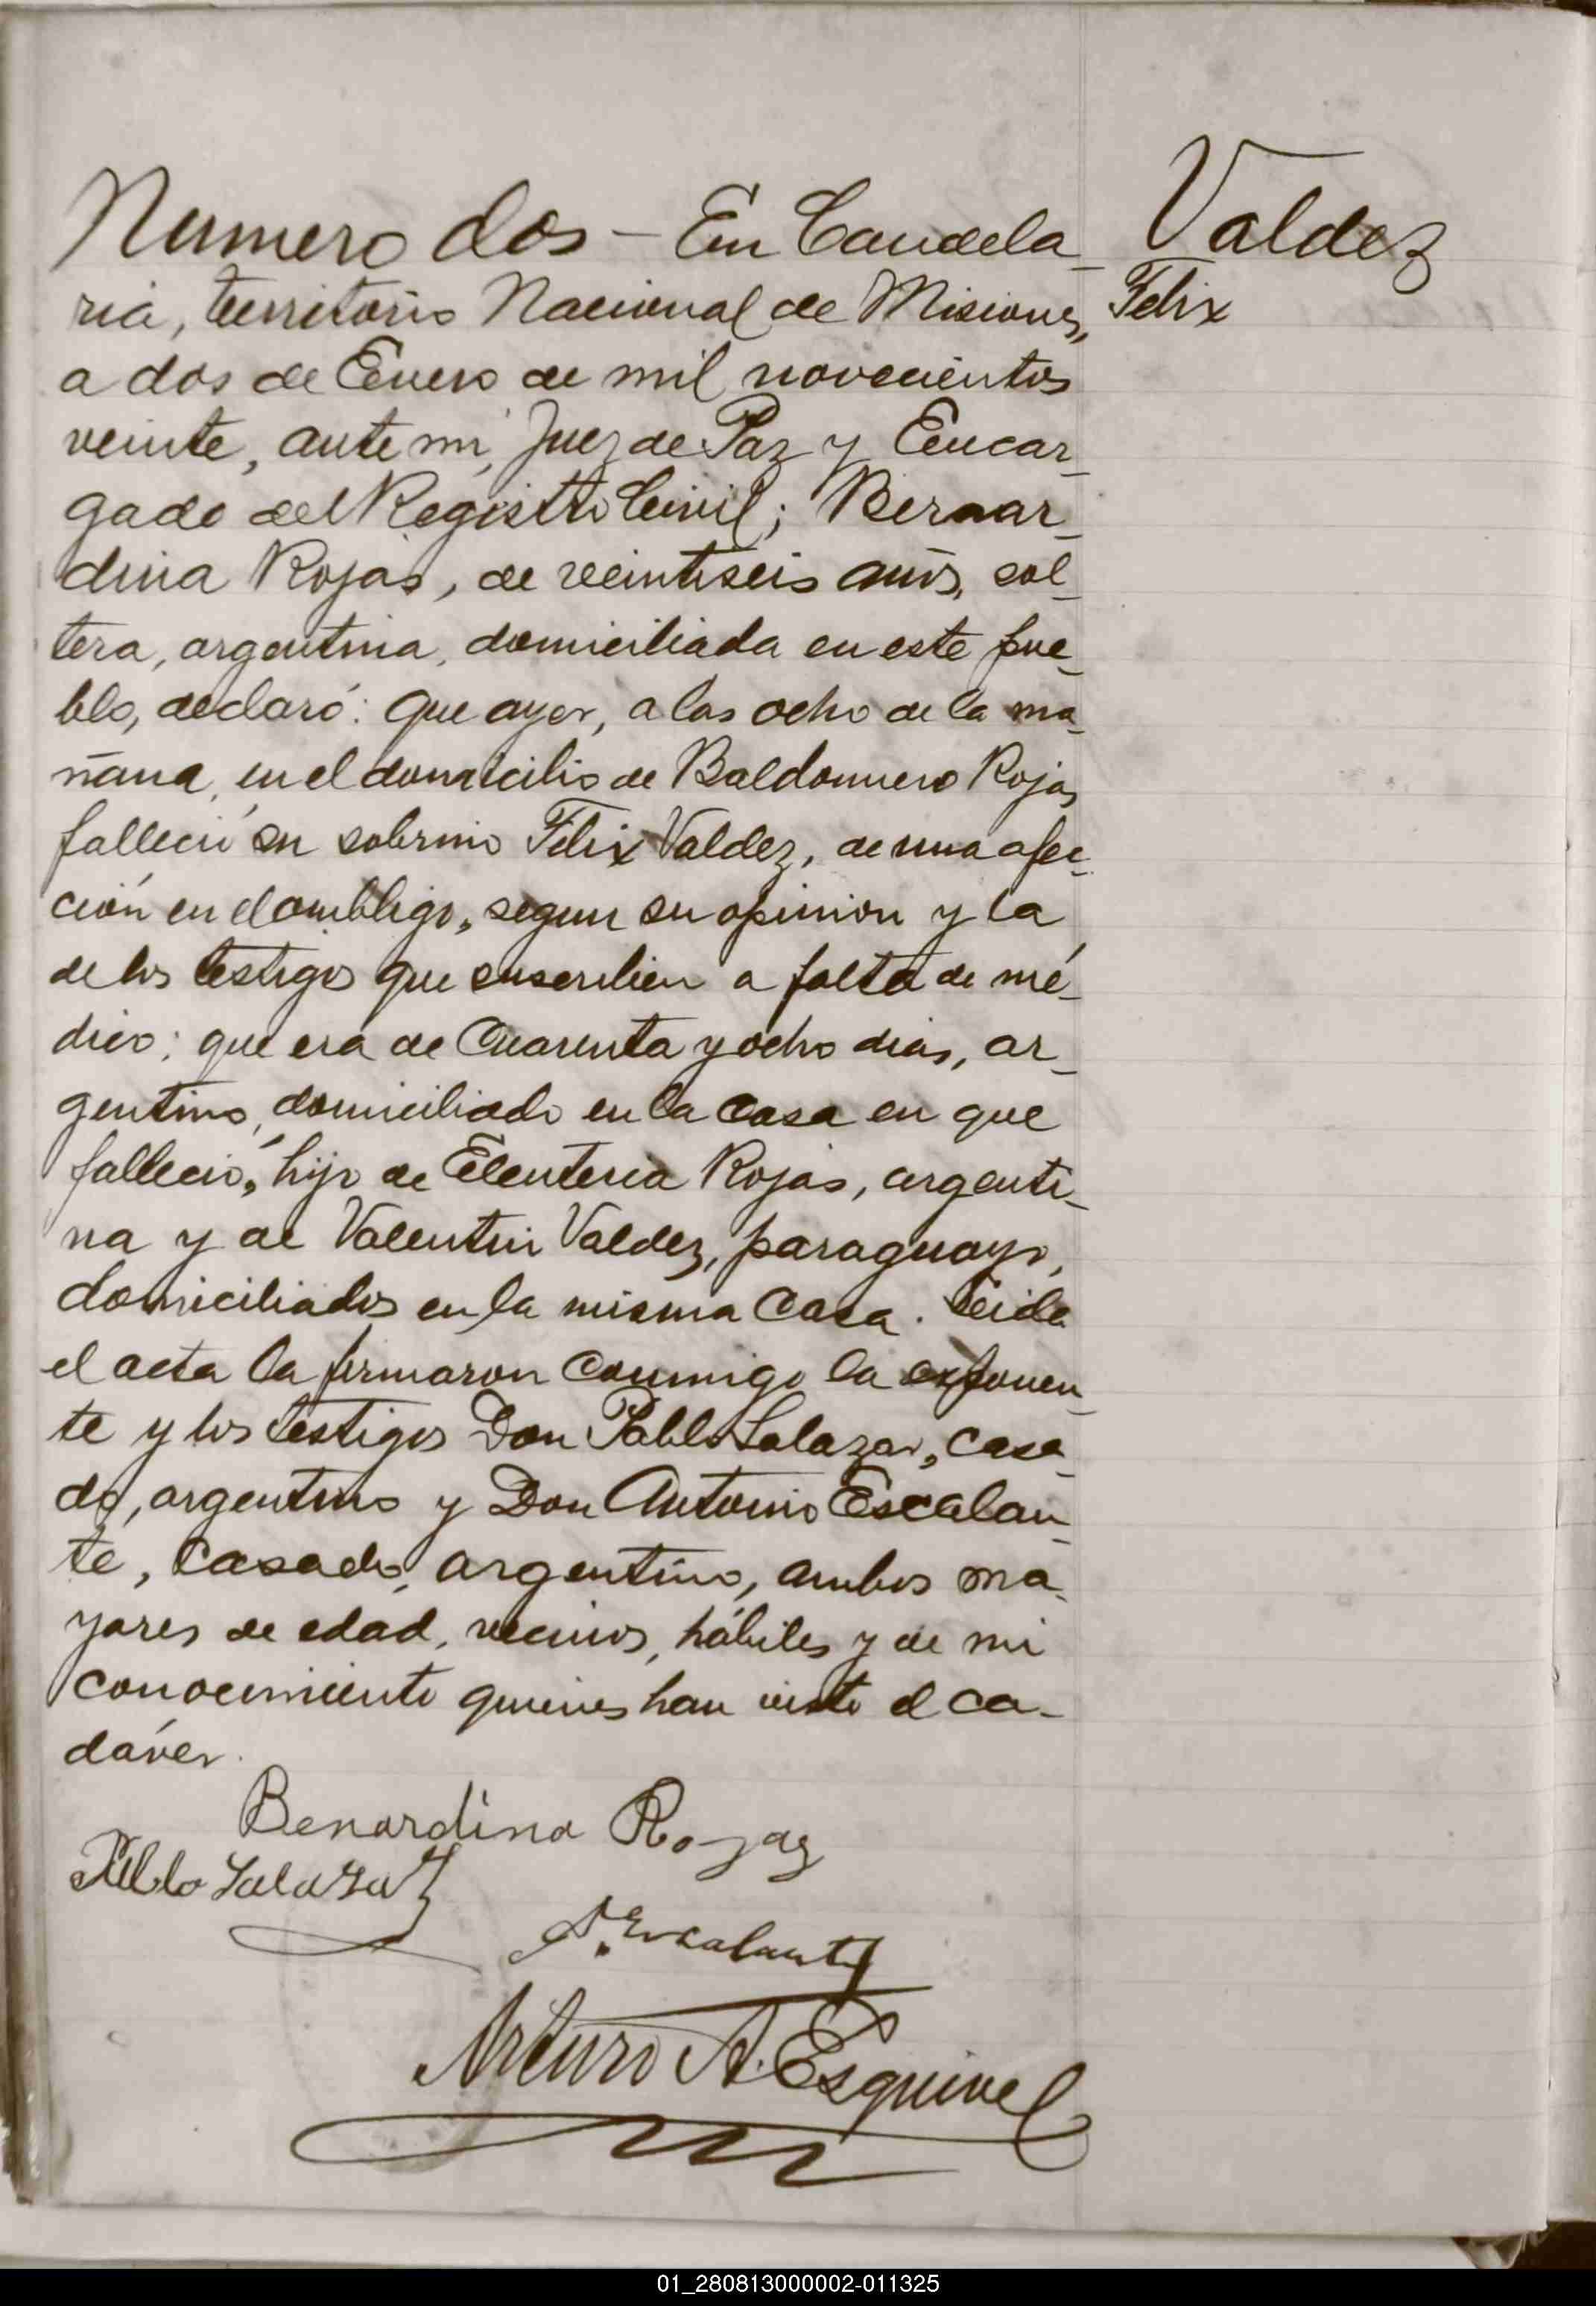 Numero dos – En Candela-
ria, territorio Nacional de Misiones,
a dos de Enero de mil novecientos
veinte, ante mi, Juez de Paz y Encar-
gado del Registro Civil; Bernar-
dina Rojas, de veintiseis años, sol-
tera, argentina, domiciliada en este pue-
blo, declaró: que ayer, a las ocho de la ma-
ñana, en el domicilio de Baldomero Rojas
falleció su sobrino Felix Valdez, de una afec-
ción en el ombligo, segun su opinion y la
de los testigos que suscriben a falta de mé-
dico; que era de cuarenta y ocho dias, ar-
gentino, domiciliado en la casa en que
falleció, hijo de Eleuteria Rojas, argenti-
na y de Valentin Valdez, paraguayo,
domiciliados en la misma casa. Leida
el acta la firmaron conmigo la exponen-
te y los testigos Don Pablo Salazar, casa-
do, argentino y Don Antonio Escalan-
te, casado, argentino, ambos ma-
yores de edad, vecinos, hábiles y de mi
conocimiento quienes han visto el ca-
dáver.
Benardina Rojas
Pablo Salazar
A. Escalante
Arturo A. Esquivel
Valdez
Felix
01_280813000002-011325